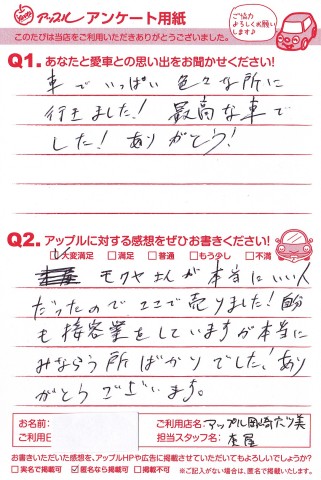 アップル アンケート用紙
ご協力
よろしくお願い
します♪
このたびは当店をご利用いただきありがとうございました。
Q1. あなたと愛車との思い出をお聞かせください!
車でいっぱい色々な所に
行きました! 最高な車で
した! ありがとう!
Q2. アップルに対する感想をぜひお書きください!
☑大変満足 □満足 □普通 □もう少し □不満
モクヤさんが本当にいい人
だったのでここで売りました! 自分
も接客業をしていますが本当に
みならう所ばかりでした! あり
がとうございます。
お名前:
ご利用店名: アップル岡崎たつ美
ご利用日
担当スタッフ名: 本屋
お書きいただいた感想を、アップルHPや広告に掲載させていただいてもよろしいでしょうか?
□実名で掲載可 ☑匿名なら掲載可 □掲載不可 ※ご記入がない場合は、匿名で掲載いたします。